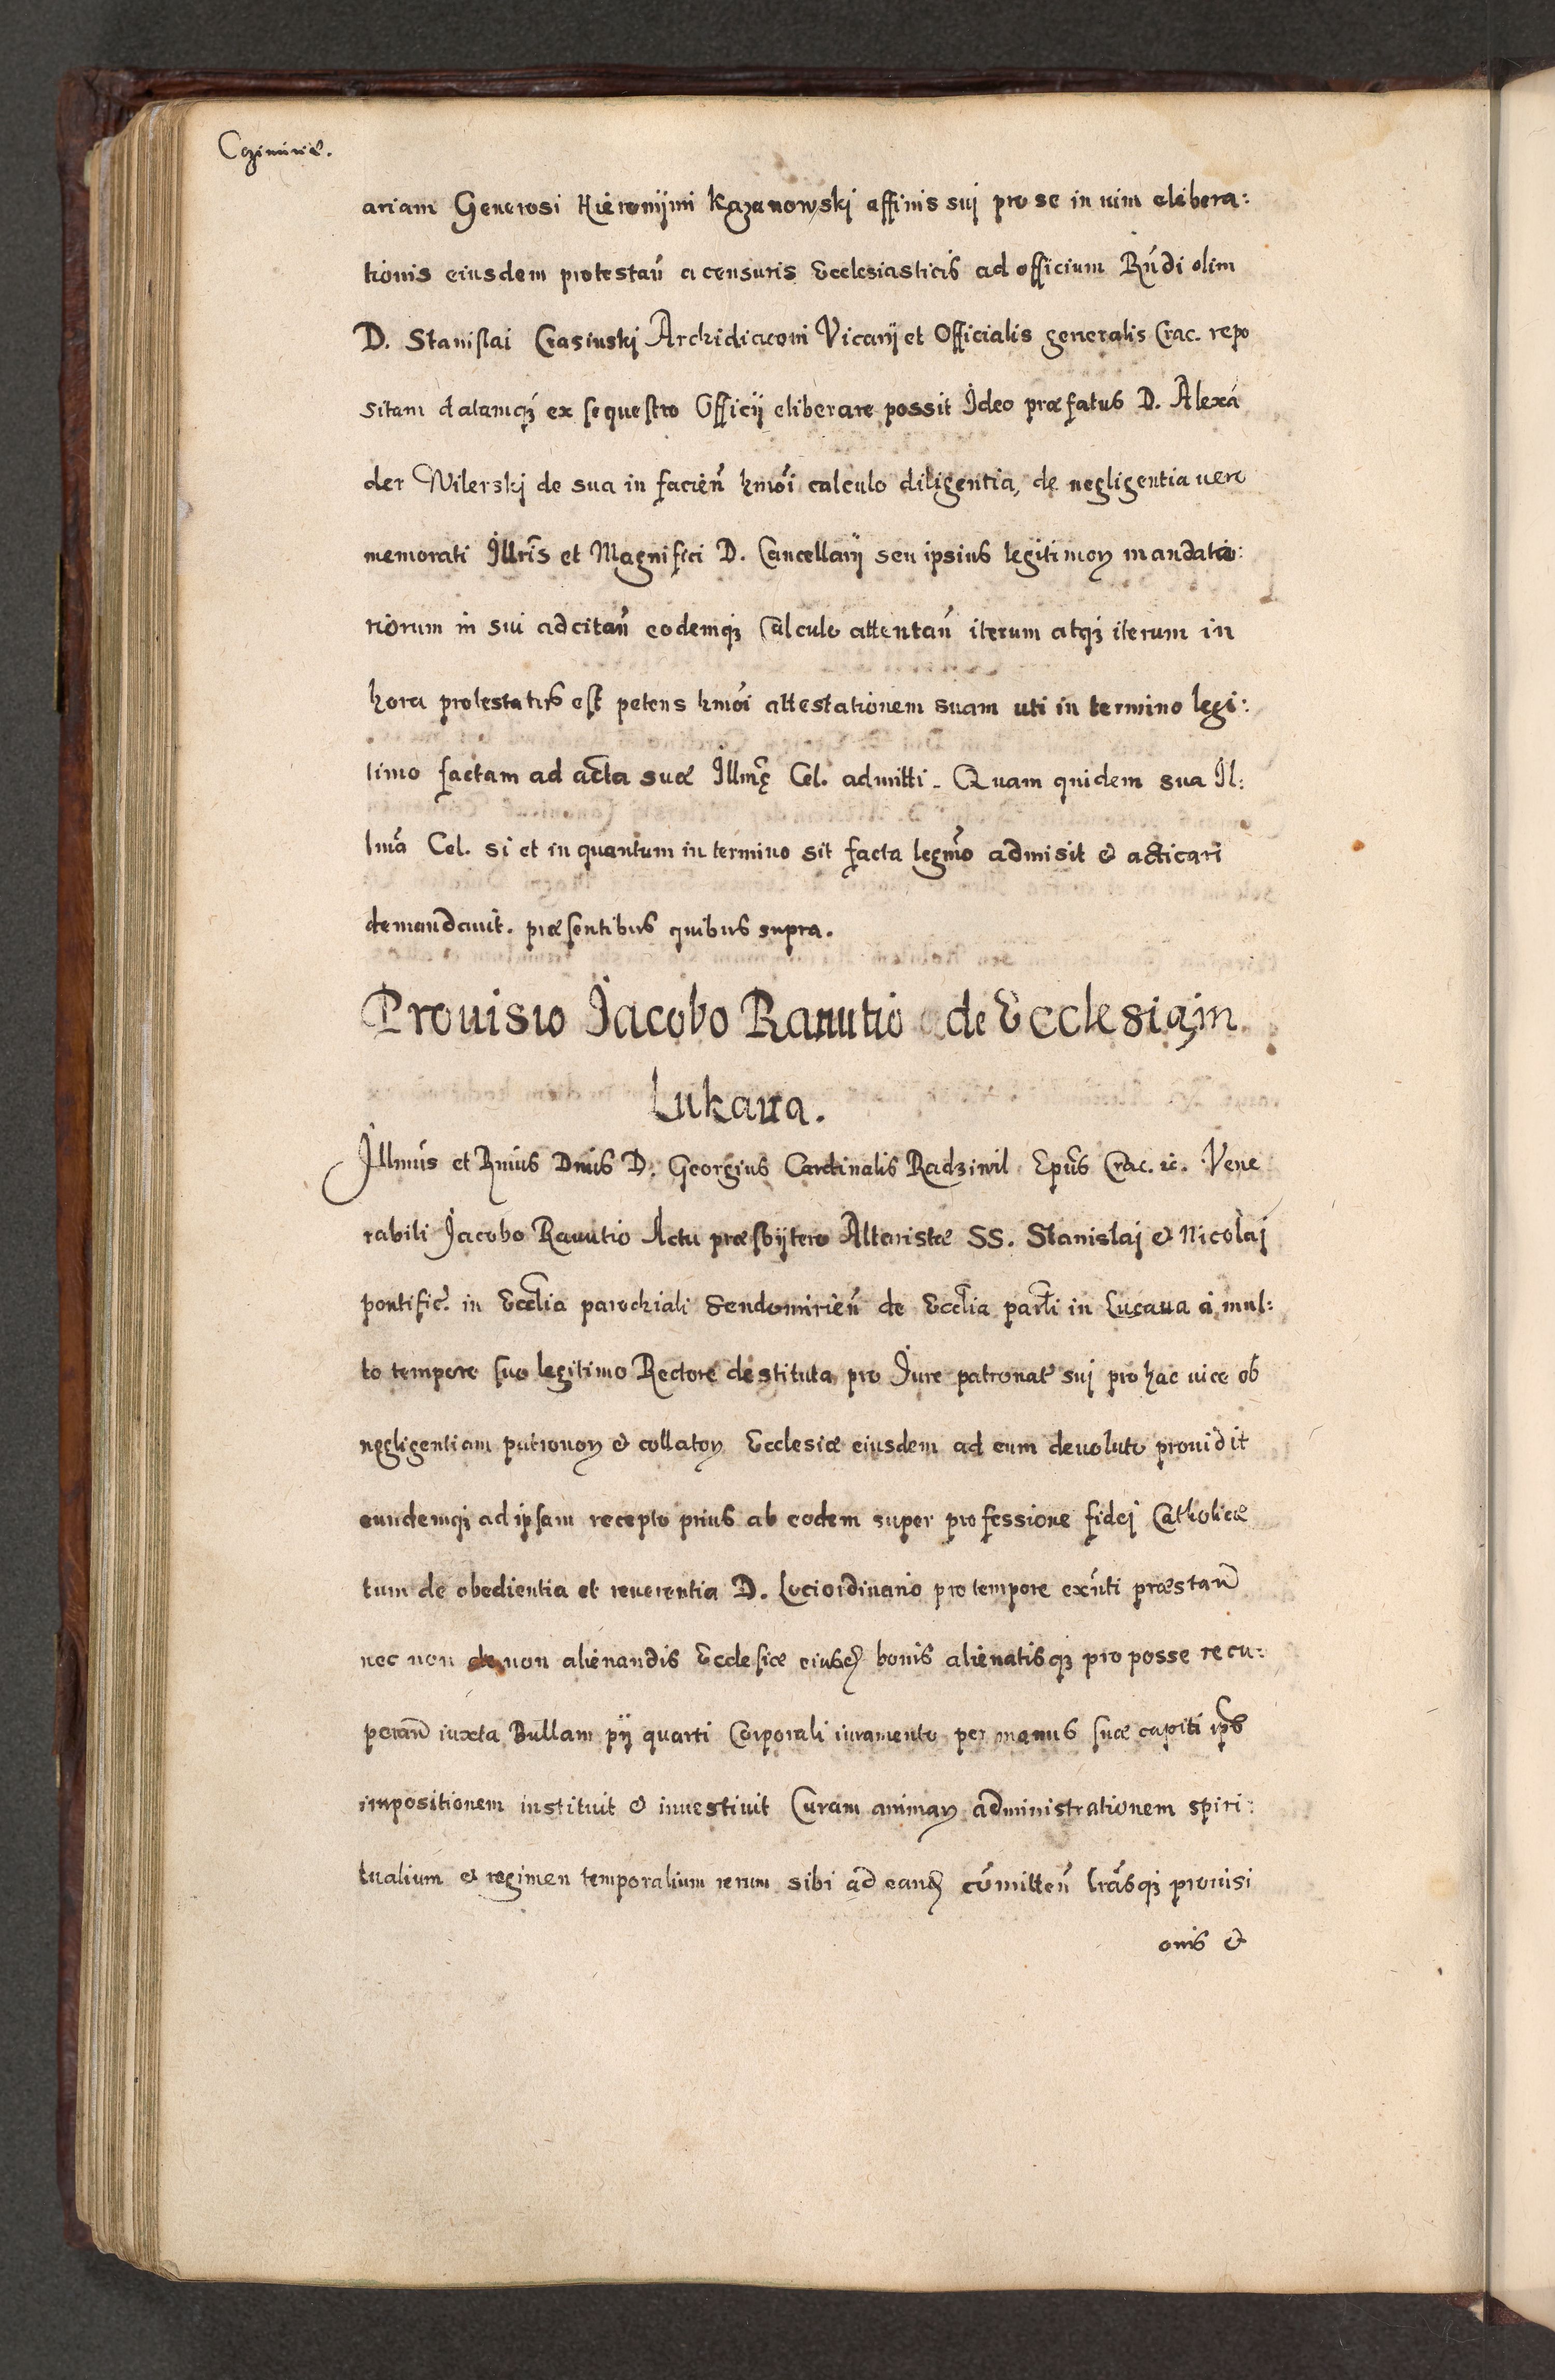 Cziminæ.
ariam Generosi Hieronijmi Kazanowskj affinis suj pro se in uim elibera:
tionis eiusdem protestan̄ a censuris Ecclesiasticis ad officium Rn̄di olim
D. Stanislai Crasinskj Archidiaconi Vicarij et Officialis generalis Crac. repo
sitam datamq₃ ex sequestro Officij eliberare possit Ideo præfatus D. Alexā
der Wilerskj de sua in facien̄ hmōi calculo diligentia, de negligentia uero
memorati Illrīs et Magnifici D. Cancellarij seu ipsius legitimoꝝ mandata:
riorum in sui adcitan̄ eodemq₃ Calculo attentan̄ iterum atq₃ iterum in
hora protestatus est petens hmōi attestationem suam uti in termino legi:
timo factam ad acta suæ Illmę̄ Cel. admitti. Quam quidem sua Il:
lmā Cel. si et in quantum in termino sit facta legmō admisit & acticari
demandauit. præsentibus quibus supra.
Prouisio Jacobo Ranutio de Ecclesia in
Lukaua.
Illmūs et Rmūs Dnūs D. Georgius Cardinalis Radziwil Epūs Crac. ꝛc. Vene
rabili Jacobo Ranutio Actu præsbijtero Altaristæ SS. Stanislaj & Nicolaj
pontific̄. in Eccl̄ia parochiali Sendomirien̄ de Eccl̄ia parl̄i in Lucaua a mul:
to tempore suo legitimo Rectore destituta pro Jure patronat9 suj pro hac uice ob
negligentiam patronoꝝ & collatoꝝ Ecclesiæ eiusdem ad eum deuoluto prouidit
eundemq₃ ad ipsam recepto prius ab eodem super professione fidej Catholicæ
tum de obedientia et reuerentia D. Lociordinario pro tempore exn̄ti præstan̄
nec non de non alienandis Ecclesiæ eiusd₎ bonis alienatisq₃ pro posse recu:
peran̄ iuxta Bullam pij quarti Corporali iuramento per manus suæ capiti ip̄s
impositionem instituit & inuestiuit Curam animaꝝ administrationem spiri:
tualium & regimen temporalium rerum sibi ad eand₎ cōmitten̄ lrāsq₃ prouisi
onis &